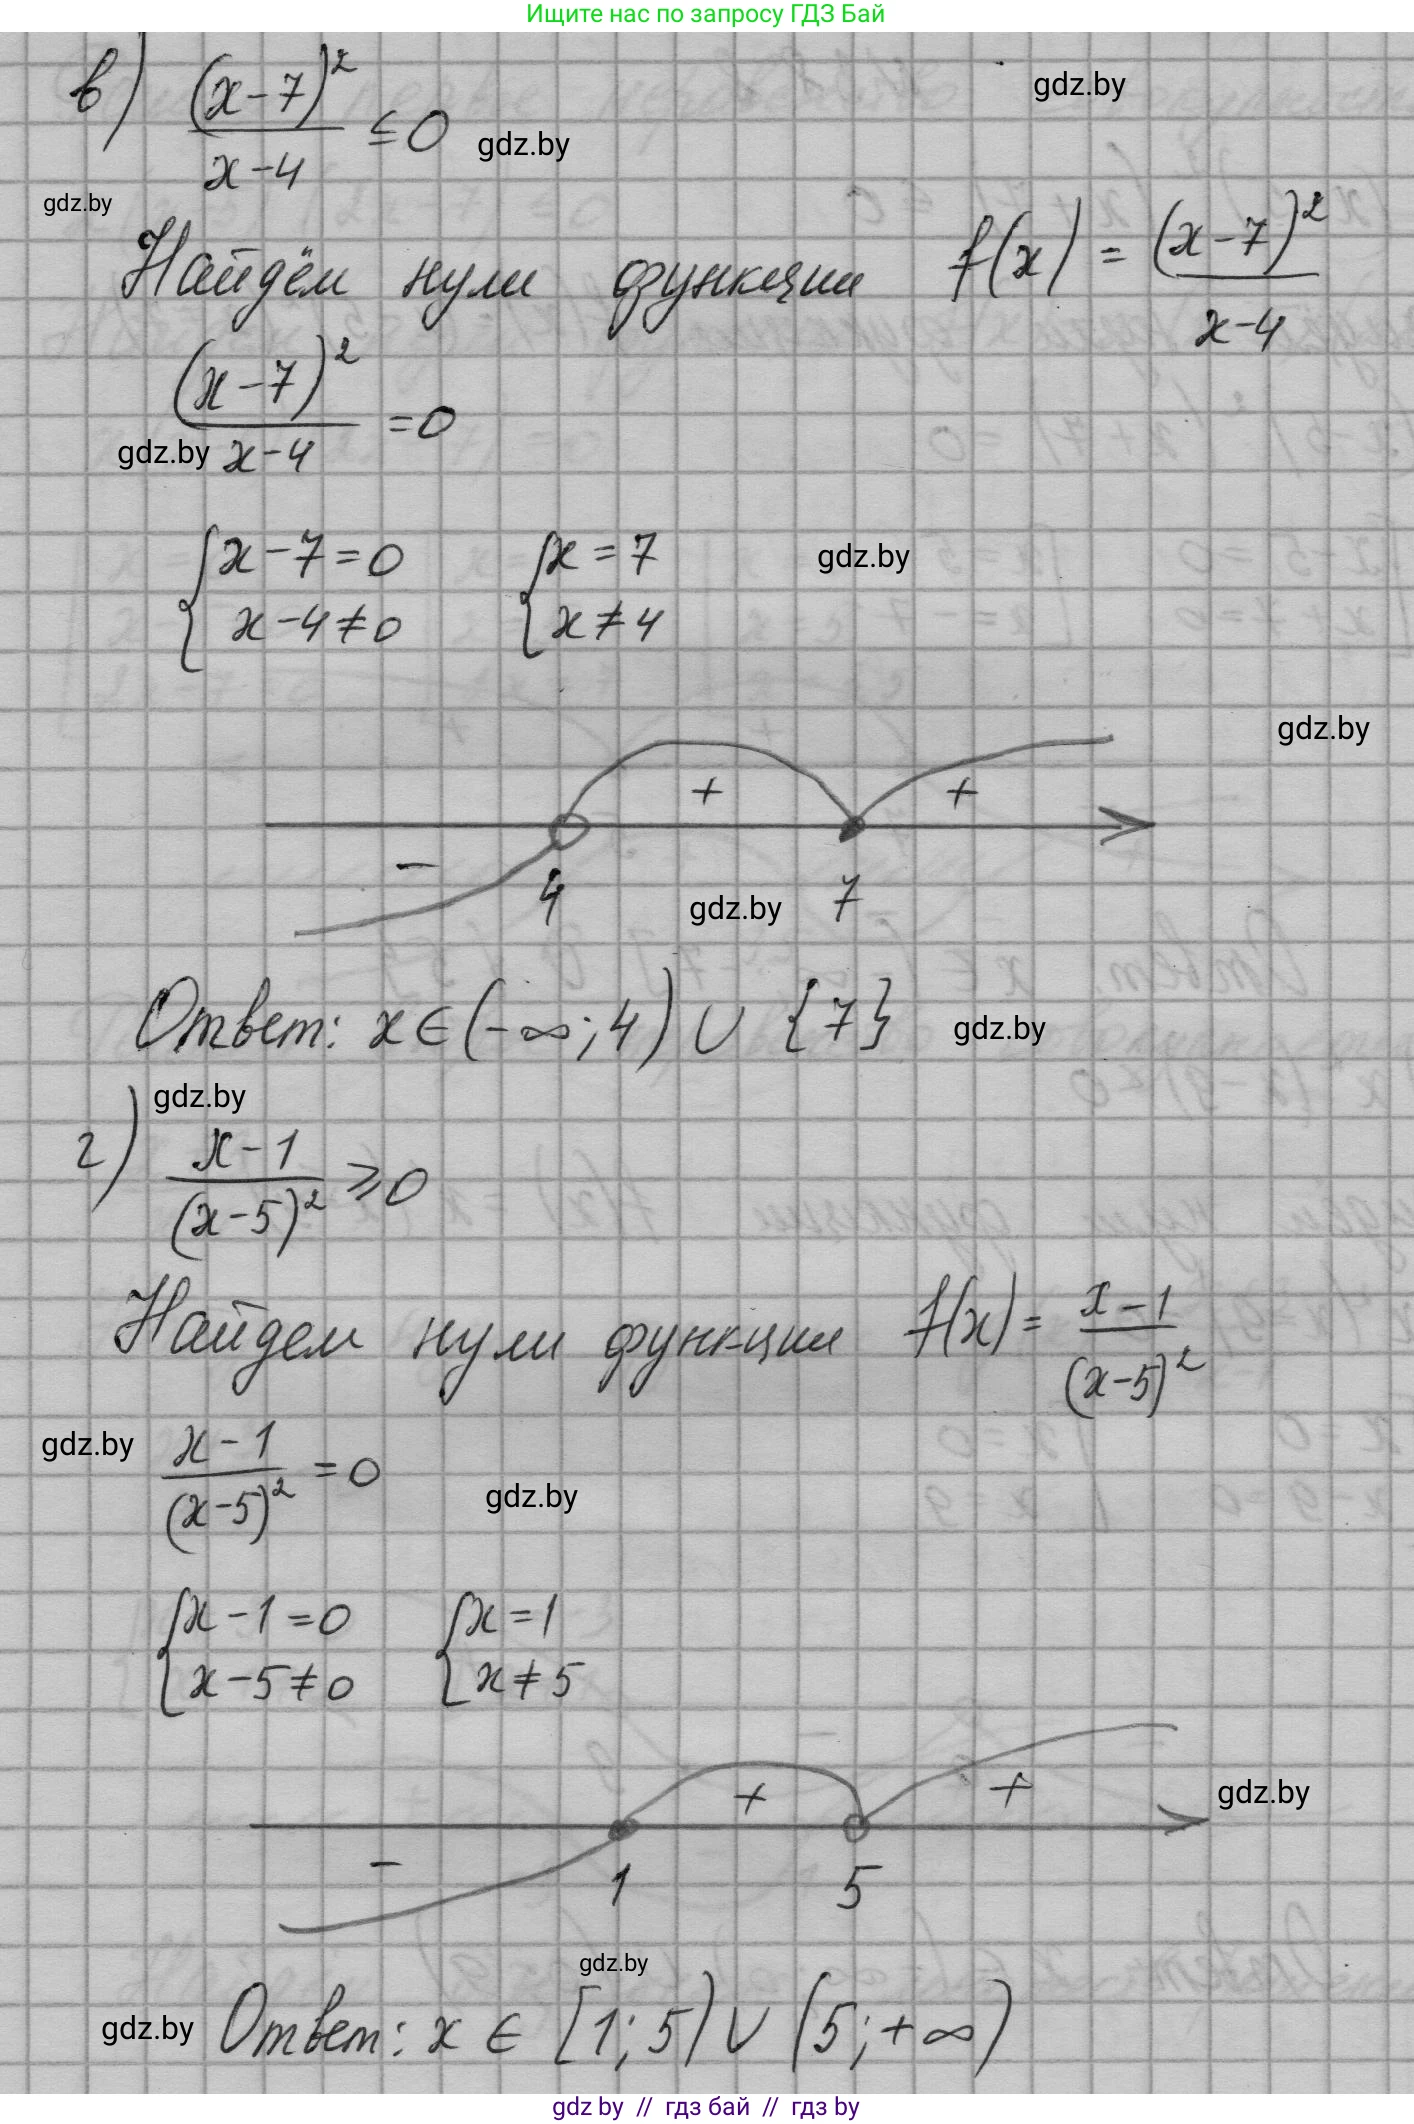 Ищите нас по запросу ГДЗ Бай
в) (x-7)²/(x-4) ≤ 0
gdz.by
gdz.by
gdz.by
Найдём нули функции f(x) = (x-7)²/(x-4)
(x-7)²/(x-4) = 0
gdz.by
{x-7=0 {x=7
gdz.by
x-4≠0 x≠4
gdz.by
+ +
-
4 7
gdz.by
Ответ: x∈(-∞;4) ∪ {7}
gdz.by
gdz.by
г) (x-1)/(x-5)² ≥ 0
Найдем нули функции f(x) = (x-1)/(x-5)²
gdz.by
(x-1)/(x-5)² = 0
gdz.by
{x-1=0 {x=1
x-5≠0 x≠5
+ +
gdz.by
-
1 5
gdz.by
gdz.by
Ответ: x ∈ [1;5) ∪ (5;+∞)
gdz.by // гдз бай // гдз by